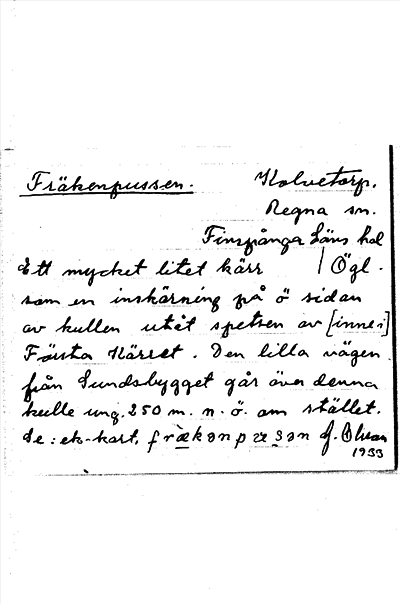 Fräkenpussen. Kolvetorp,
Regna sn.
Finspånga Läns hd
Ett mycket litet kärr / Ögl.
som en inskärning på ö sidan
av kullen utåt spetsen av [inne i]
Första Kärret. Den lilla vägen
från Sundsbygget går över denna
kulle ung. 250 m. n. ö. om stället.
Se: ek-kart.
1933